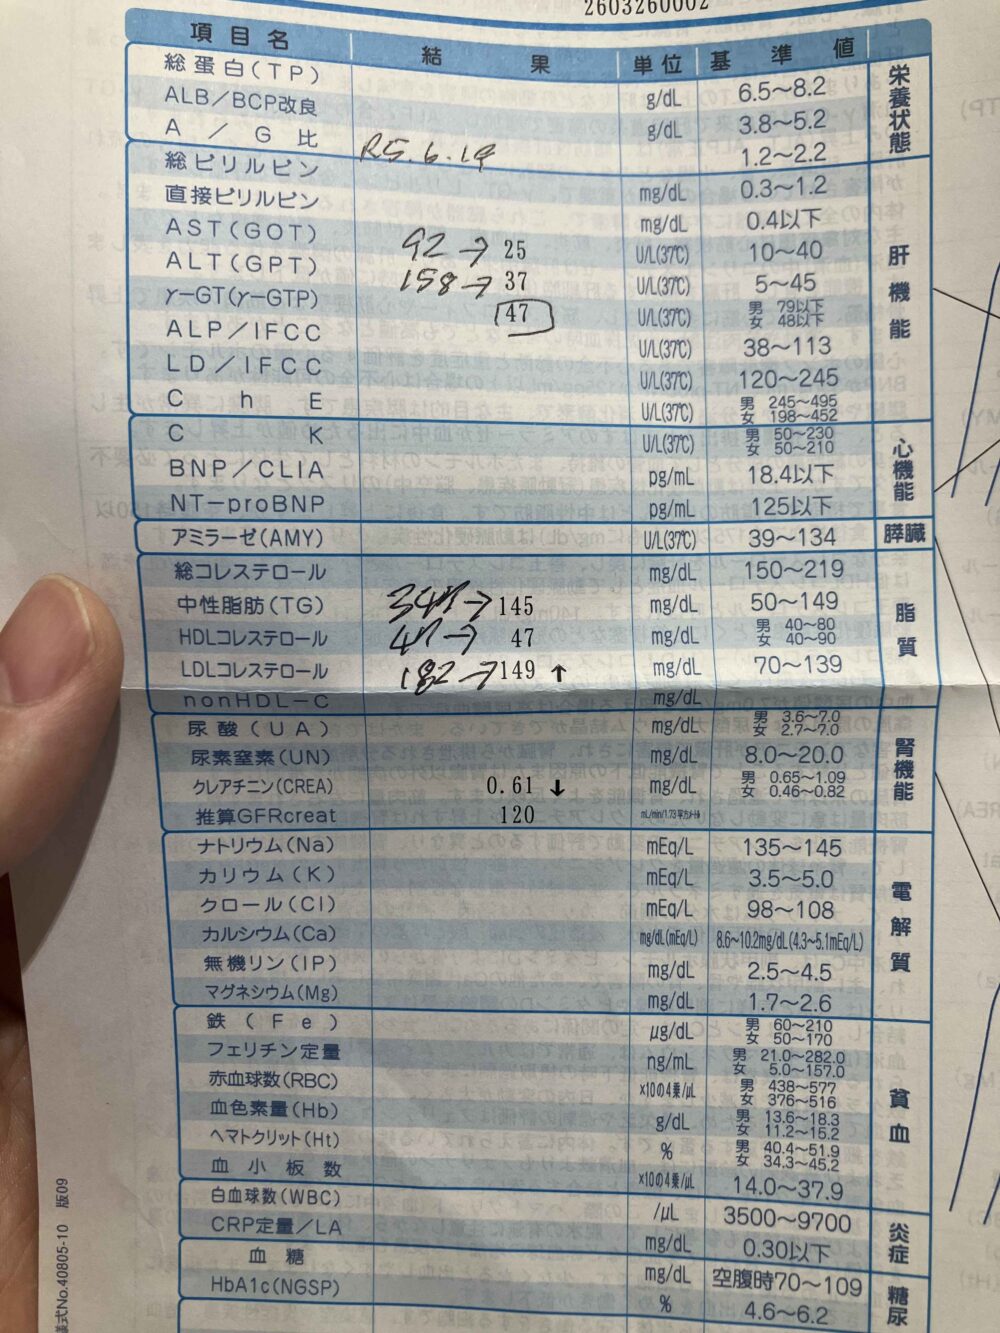 2603260002
項目名 結果 単位 基準値
総蛋白(TP) g/dL 6.5～8.2 栄養状態
ALB/BCP改良 g/dL 3.8～5.2
A/G比 R5.6.19 1.2～2.2
総ビリルビン mg/dL 0.3～1.2 肝機能
直接ビリルビン mg/dL 0.4以下
AST(GOT) 92→25 U/L(37℃) 10～40
ALT(GPT) 158→37 U/L(37℃) 5～45
γ-GT(γ-GTP) 47 U/L(37℃) 男 79以下 女 48以下
ALP/IFCC U/L(37℃) 38～113
LD/IFCC U/L(37℃) 120～245
ChE U/L(37℃) 男 245～495 女 198～452
CK U/L(37℃) 男 50～230 女 50～210 心機能
BNP/CLIA pg/mL 18.4以下
NT-proBNP pg/mL 125以下
アミラーゼ(AMY) U/L(37℃) 39～134 膵臓
総コレステロール mg/dL 150～219 脂質
中性脂肪(TG) →145 mg/dL 50～149
HDLコレステロール →47 mg/dL 男 40～80 女 40～90
LDLコレステロール 182→149 ↑ mg/dL 70～139
nonHDL-C mg/dL
尿酸(UA) mg/dL 男 3.6～7.0 女 2.7～7.0 腎機能
尿素窒素(UN) mg/dL 8.0～20.0
クレアチニン(CREA) 0.61 ↓ mg/dL 男 0.65～1.09 女 0.46～0.82
推算GFRcreat 120 mL/min/1.73平方メートル
ナトリウム(Na) mEq/L 135～145 電解質
カリウム(K) mEq/L 3.5～5.0
クロール(Cl) mEq/L 98～108
カルシウム(Ca) mg/dL(mEq/L) 8.6～10.2mg/dL(4.3～5.1mEq/L)
無機リン(IP) mg/dL 2.5～4.5
マグネシウム(Mg) mg/dL 1.7～2.6
鉄(Fe) μg/dL 男 60～210 女 50～170 貧血
フェリチン定量 ng/mL 男 21.0～282.0 女 5.0～157.0
赤血球数(RBC) ×10の4乗/μL 男 438～577 女 376～516
血色素量(Hb) g/dL 男 13.6～18.3 女 11.2～15.2
ヘマトクリット(Ht) % 男 40.4～51.9 女 34.3～45.2
血小板数 ×10の4乗/μL 14.0～37.9
白血球数(WBC) /μL 3500～9700 炎症
CRP定量/LA mg/dL 0.30以下
血糖 mg/dL 空腹時70～109 糖尿
HbA1c(NGSP) % 4.6～6.2
様式No.40805-10 版09